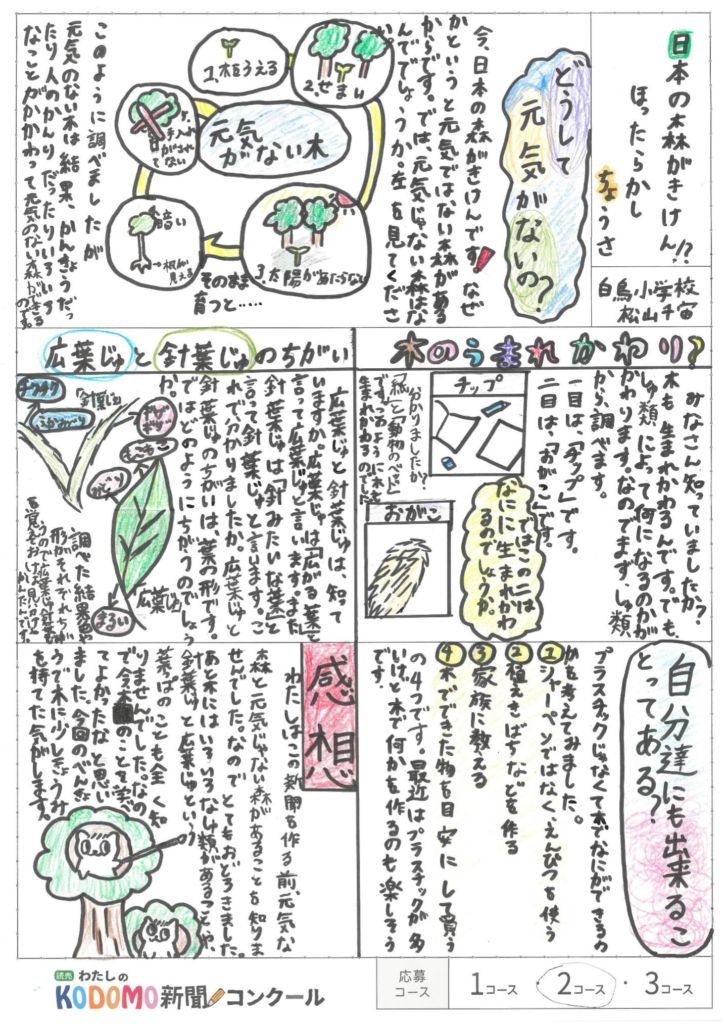 日本の森がきけん!?
ほったらかし
ちょうさ
白鳥小学校
松山千宙
どうして
元気が
ないの?
今、日本の森がきけんです!なぜ
かというと元気ではない森がある
からです。では、元気じゃない森はな
んででしょうか。左を見てくださ
い。
元気
がない木
1.木をうえる
2.せまい
3.太陽があたらない
そのまま
育つと……
暗い
根が
見える
手入れ
がされ
てない
このように調べましたが
元気のない木は結果、かんきょうだっ
たり人のかんりだったりいろいろ
なことがかかわって元気のない森ができる
のです。
木のうまれかわり?
みなさん知っていましたか?
木も生まれかわるんです。でも、
しゅ類によって何になるのかが
かわります。なのでまず、しゅ類
から、調べます。
一目は、「チップ」です。
二目は、「おがこ」です。
ではこの二は
なにに生まれかわ
るのでしょうか。
チップ
おがこ
わかりましたか?
「紙」と「動物のベッド」
です。このように木も
生まれかわるのでした。
広葉じゅと針葉じゅのちがい
広葉じゅと針葉じゅは、知って
いますか。広葉じゅは「広がる葉」と
言って広葉じゅと言います。また
針葉じゅは「針みたいな葉」と
言って針葉じゅと言います。こ
れで分かりましたか。広葉じゅと
針葉じゅのちがいは、葉の形です。
ではどのようにちがうのでしょう
か。
針葉じゅ
チクチク
広葉じゅ
まるい
調べた結果葉や
形がそれぞれちが
自分達にも出来るこ
とってある?
プラスチックじゃなくて木でなにができるの
かを考えてみました。
①シャーペンではなく、えんぴつを使う
②植えきばちなどを作る
③家族に教える
④木でできた物を目安にして買う
の4つです。最近はプラスチックが多
いけど木で何かを作るのも楽しそう
です。
感想
わたしはこの新聞を作る前、元気な
森と元気じゃない森があることを知りま
せんでした。なので とてもおどろきました。
あと木にはいろいろなしゅ類があることや、
針葉じゅと広葉じゅという
葉っぱのことも全く知
りませんでした。なの
で今木のことを学べ
てよかったなと思い
ました。今回のべんきょ
うで木に少しきょうみ
を持てた気がします。
読売 わたしの
KODOMO新聞コンクール
応募
コース
1コース ・ 2コース ・ 3コース